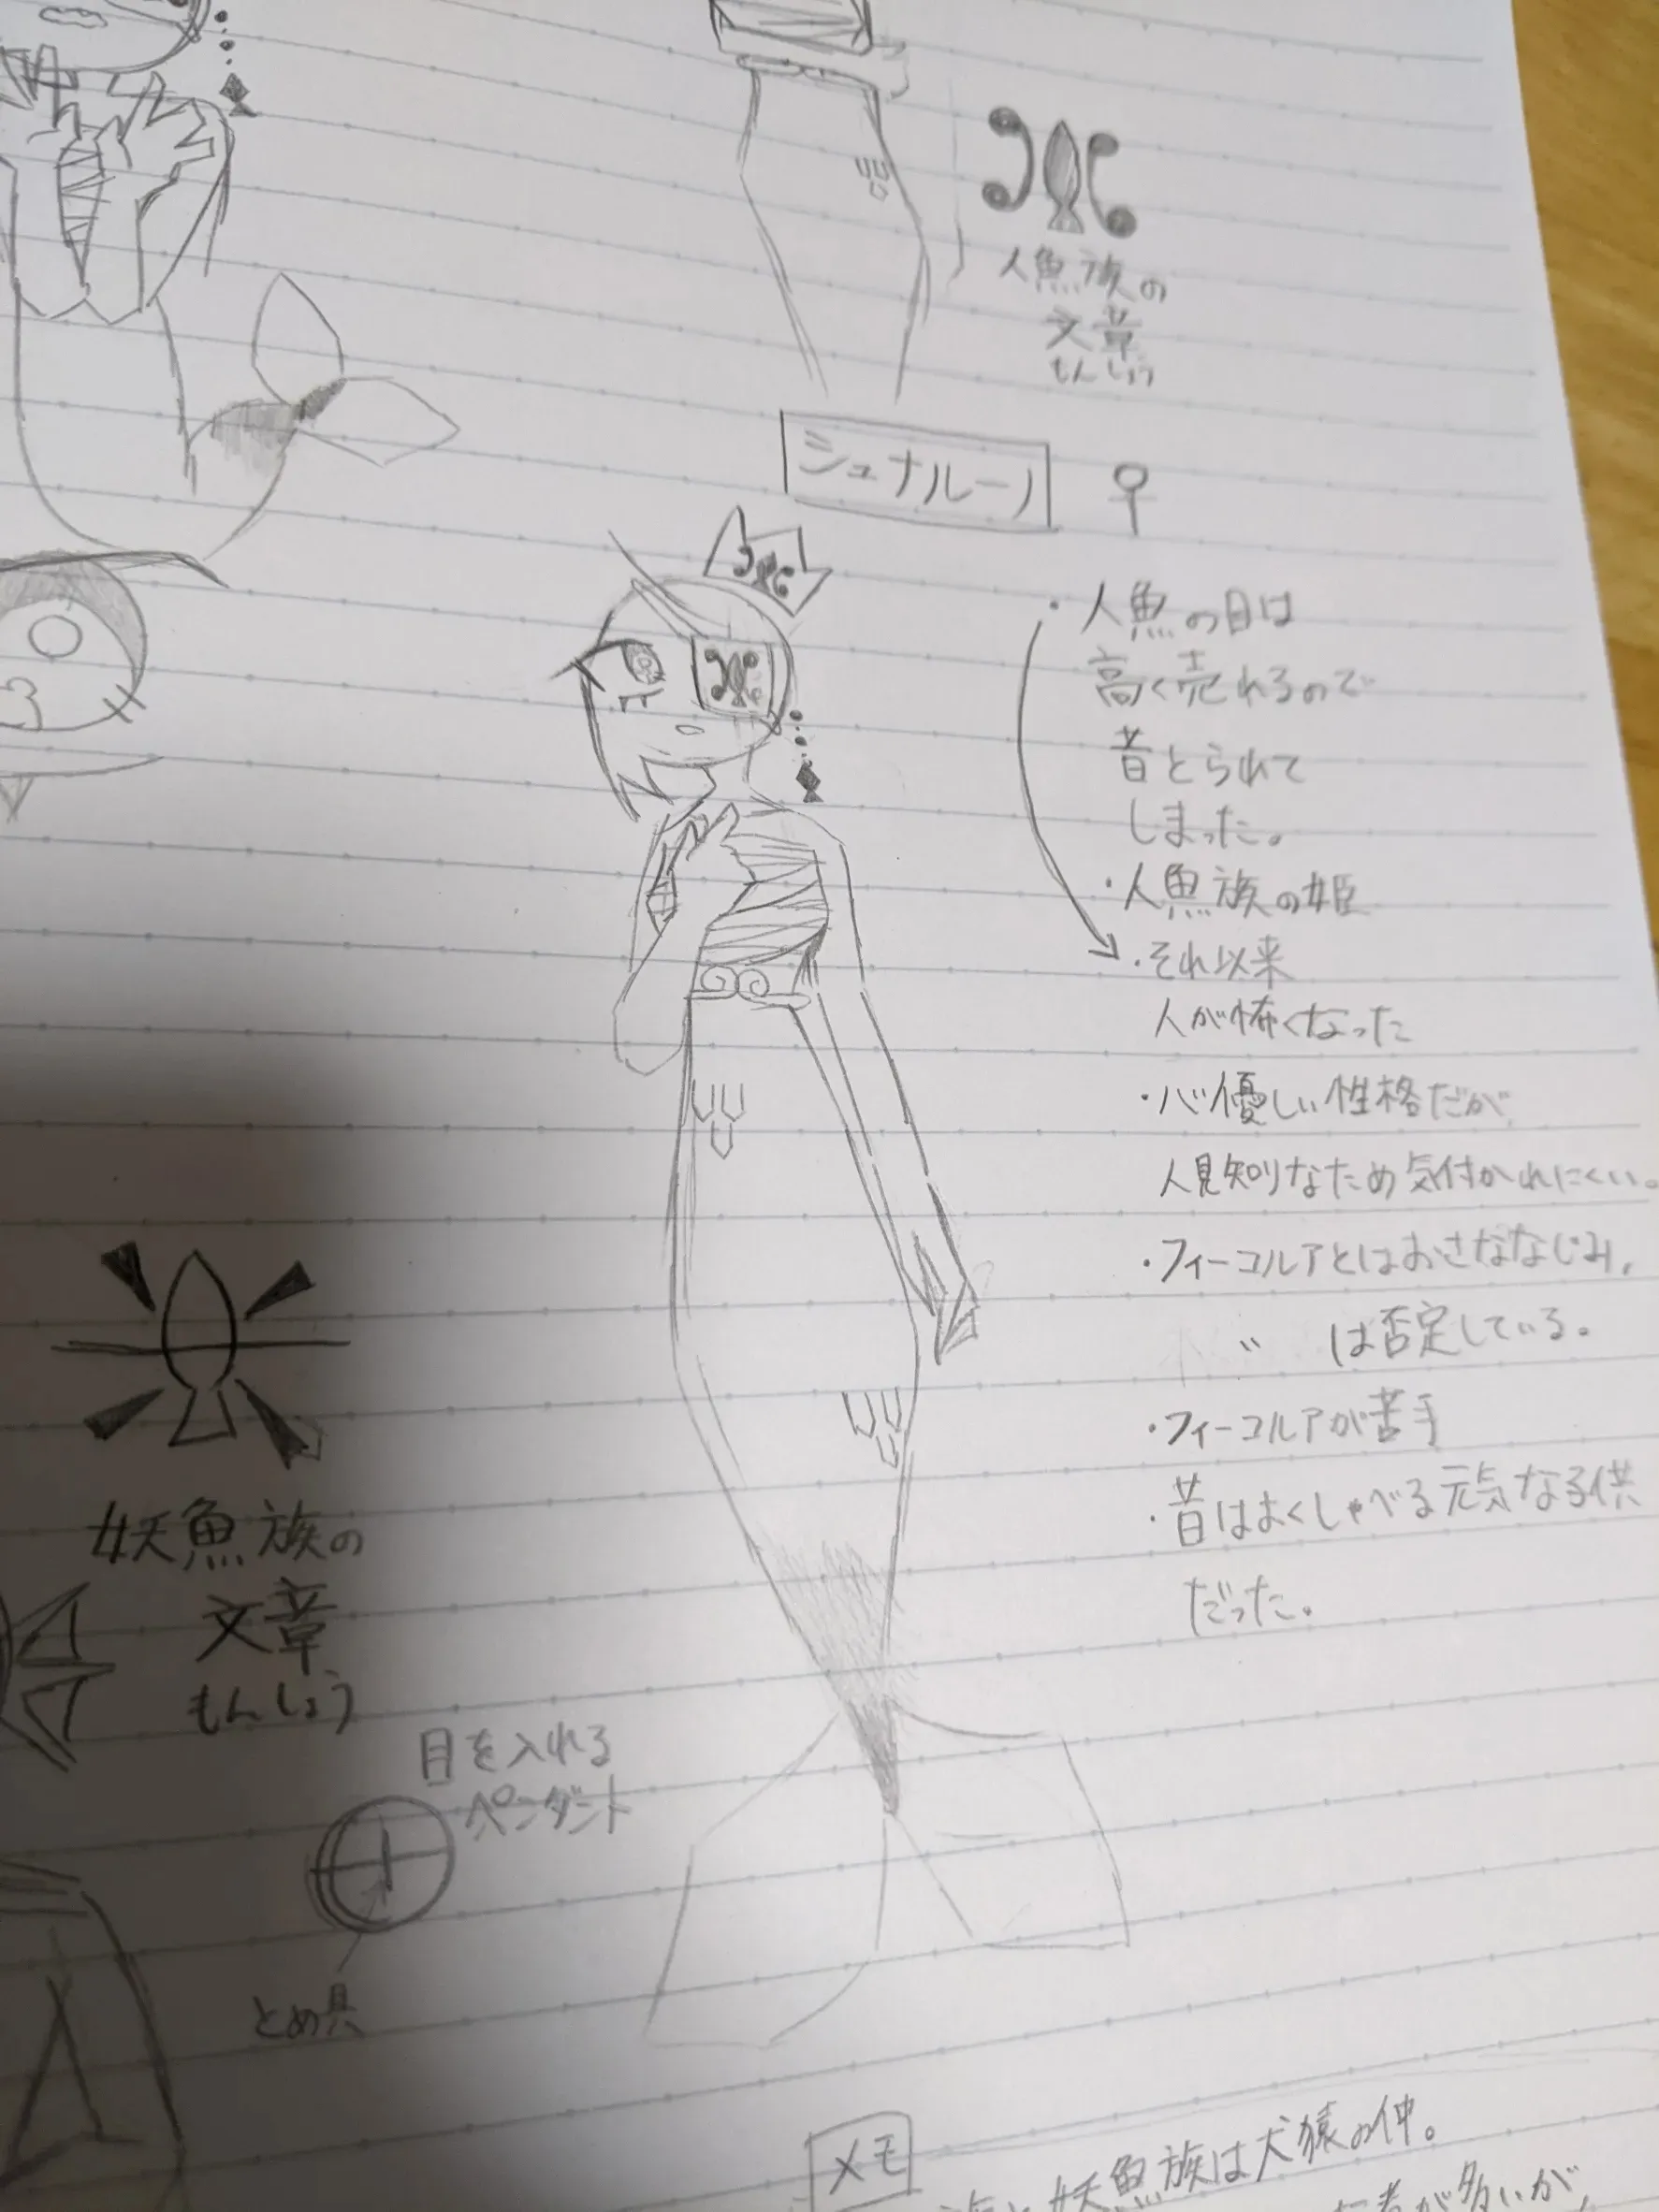 人魚族の
文章
もんしょう
シュナルーノ ♀
・人魚の目は
高く売れるので
昔とられて
しまった。
・人魚族の姫
・それ以来
人が怖くなった
・心優しい性格だが
人見知りなため気付かれにくい。
・フィーコルアとはおさななじみ。
〃 は否定している。
・フィーコルアが苦手
・昔はよくしゃべる元気な子供
だった。
妖魚族の
文章
もんしょう
目を入れる
ペンダント
とめ具
メモ
妖魚族は犬猿の仲。
が多いが